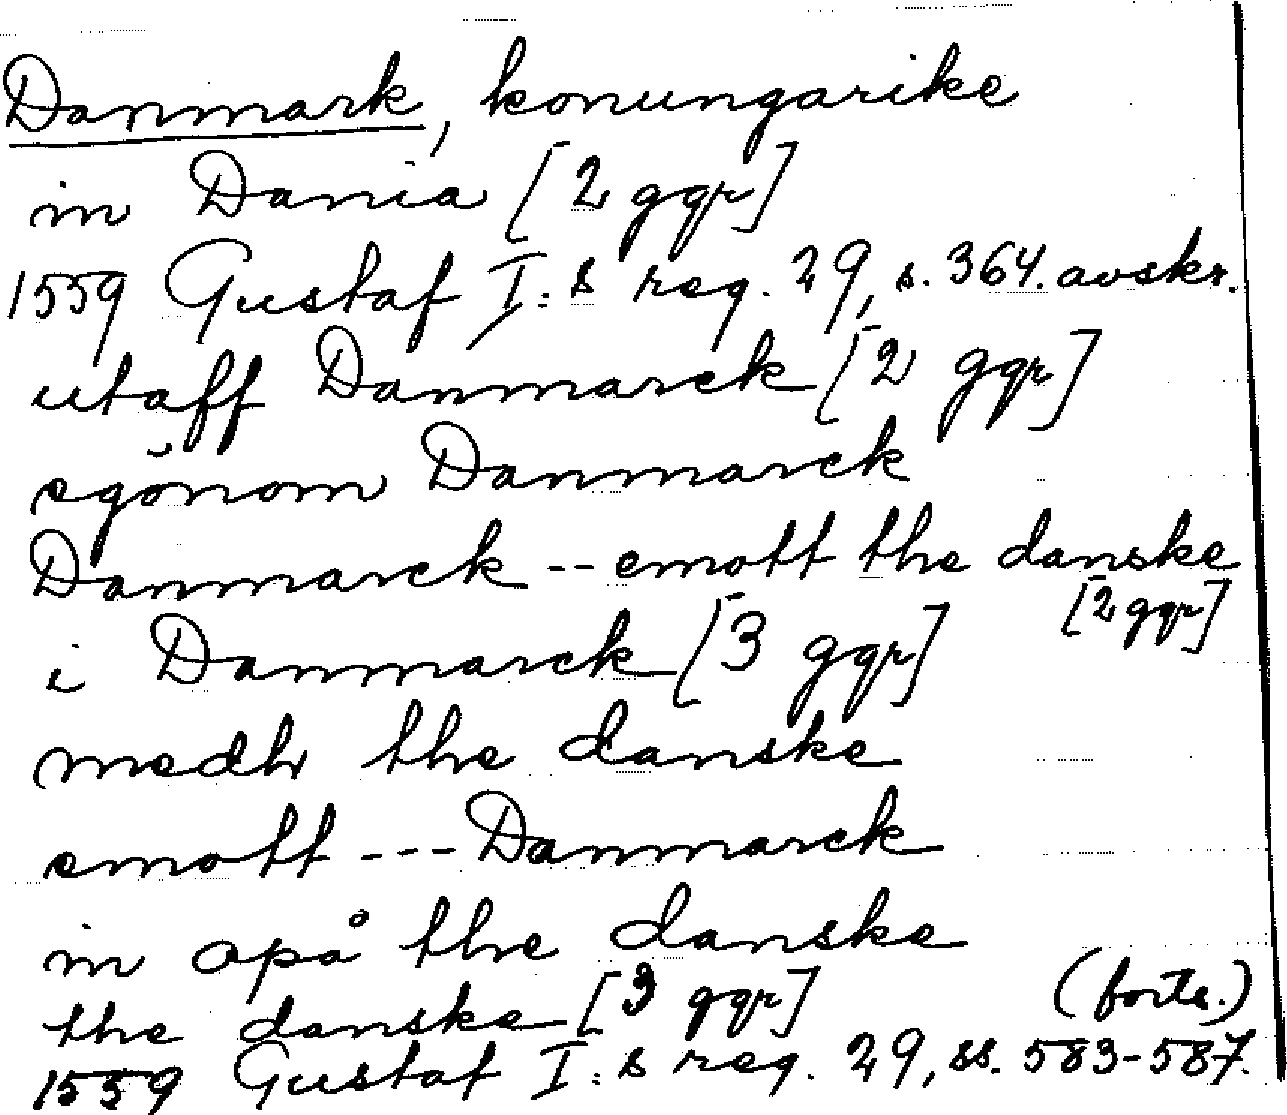 Danmark, konungarike
in Dania [2 ggr]
1559 Gustaf I:s reg. 29, s. 364. avskr.
utaff Danmarck [2 ggr]
egönom Danmarck
Danmarck -- emott the danske
[2 ggr]
i Danmarck [3 ggr]
medh the danske
emott --- Danmarck
in opå the danske
the danske [3 ggr] (forts.)
1559 Gustaf I:s reg. 29, ss. 583-587.